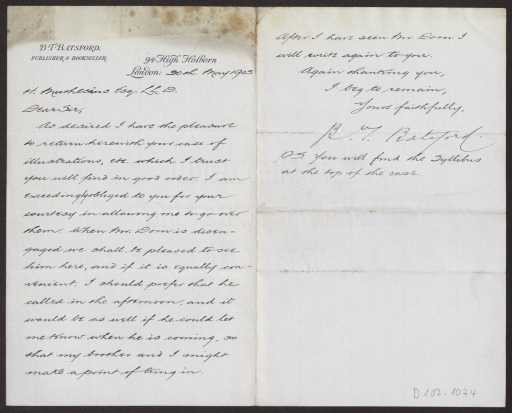 B.T. BATSFORD,
PUBLISHER & BOOKSELLER.
94 High Holborn
London: 20th May 1903
H. Muthesius Esq. LL.D.
Dear Sir,
As desired I have the pleasure
to return herewith your case of
illustrations, etc which I trust
you will find in good order. I am
exceedingly obliged to you for your
courtesy in allowing me to go over
them. When Mr. Dorn is disen-
gaged we shall be pleased to see
him here, and if it is equally con-
venient, I should prefer that he
called in the afternoon, and it
would be as well if he could let
me know when he is coming, so
that my brother and I might
make a point of being in.
After I have seen Mr. Dorn I
will write again to you.
Again thanking you,
I beg to remain,
Yours faithfully,
B. T. Batsford.
PS You will find the Syllabus
at the top of the case
D 102-1074